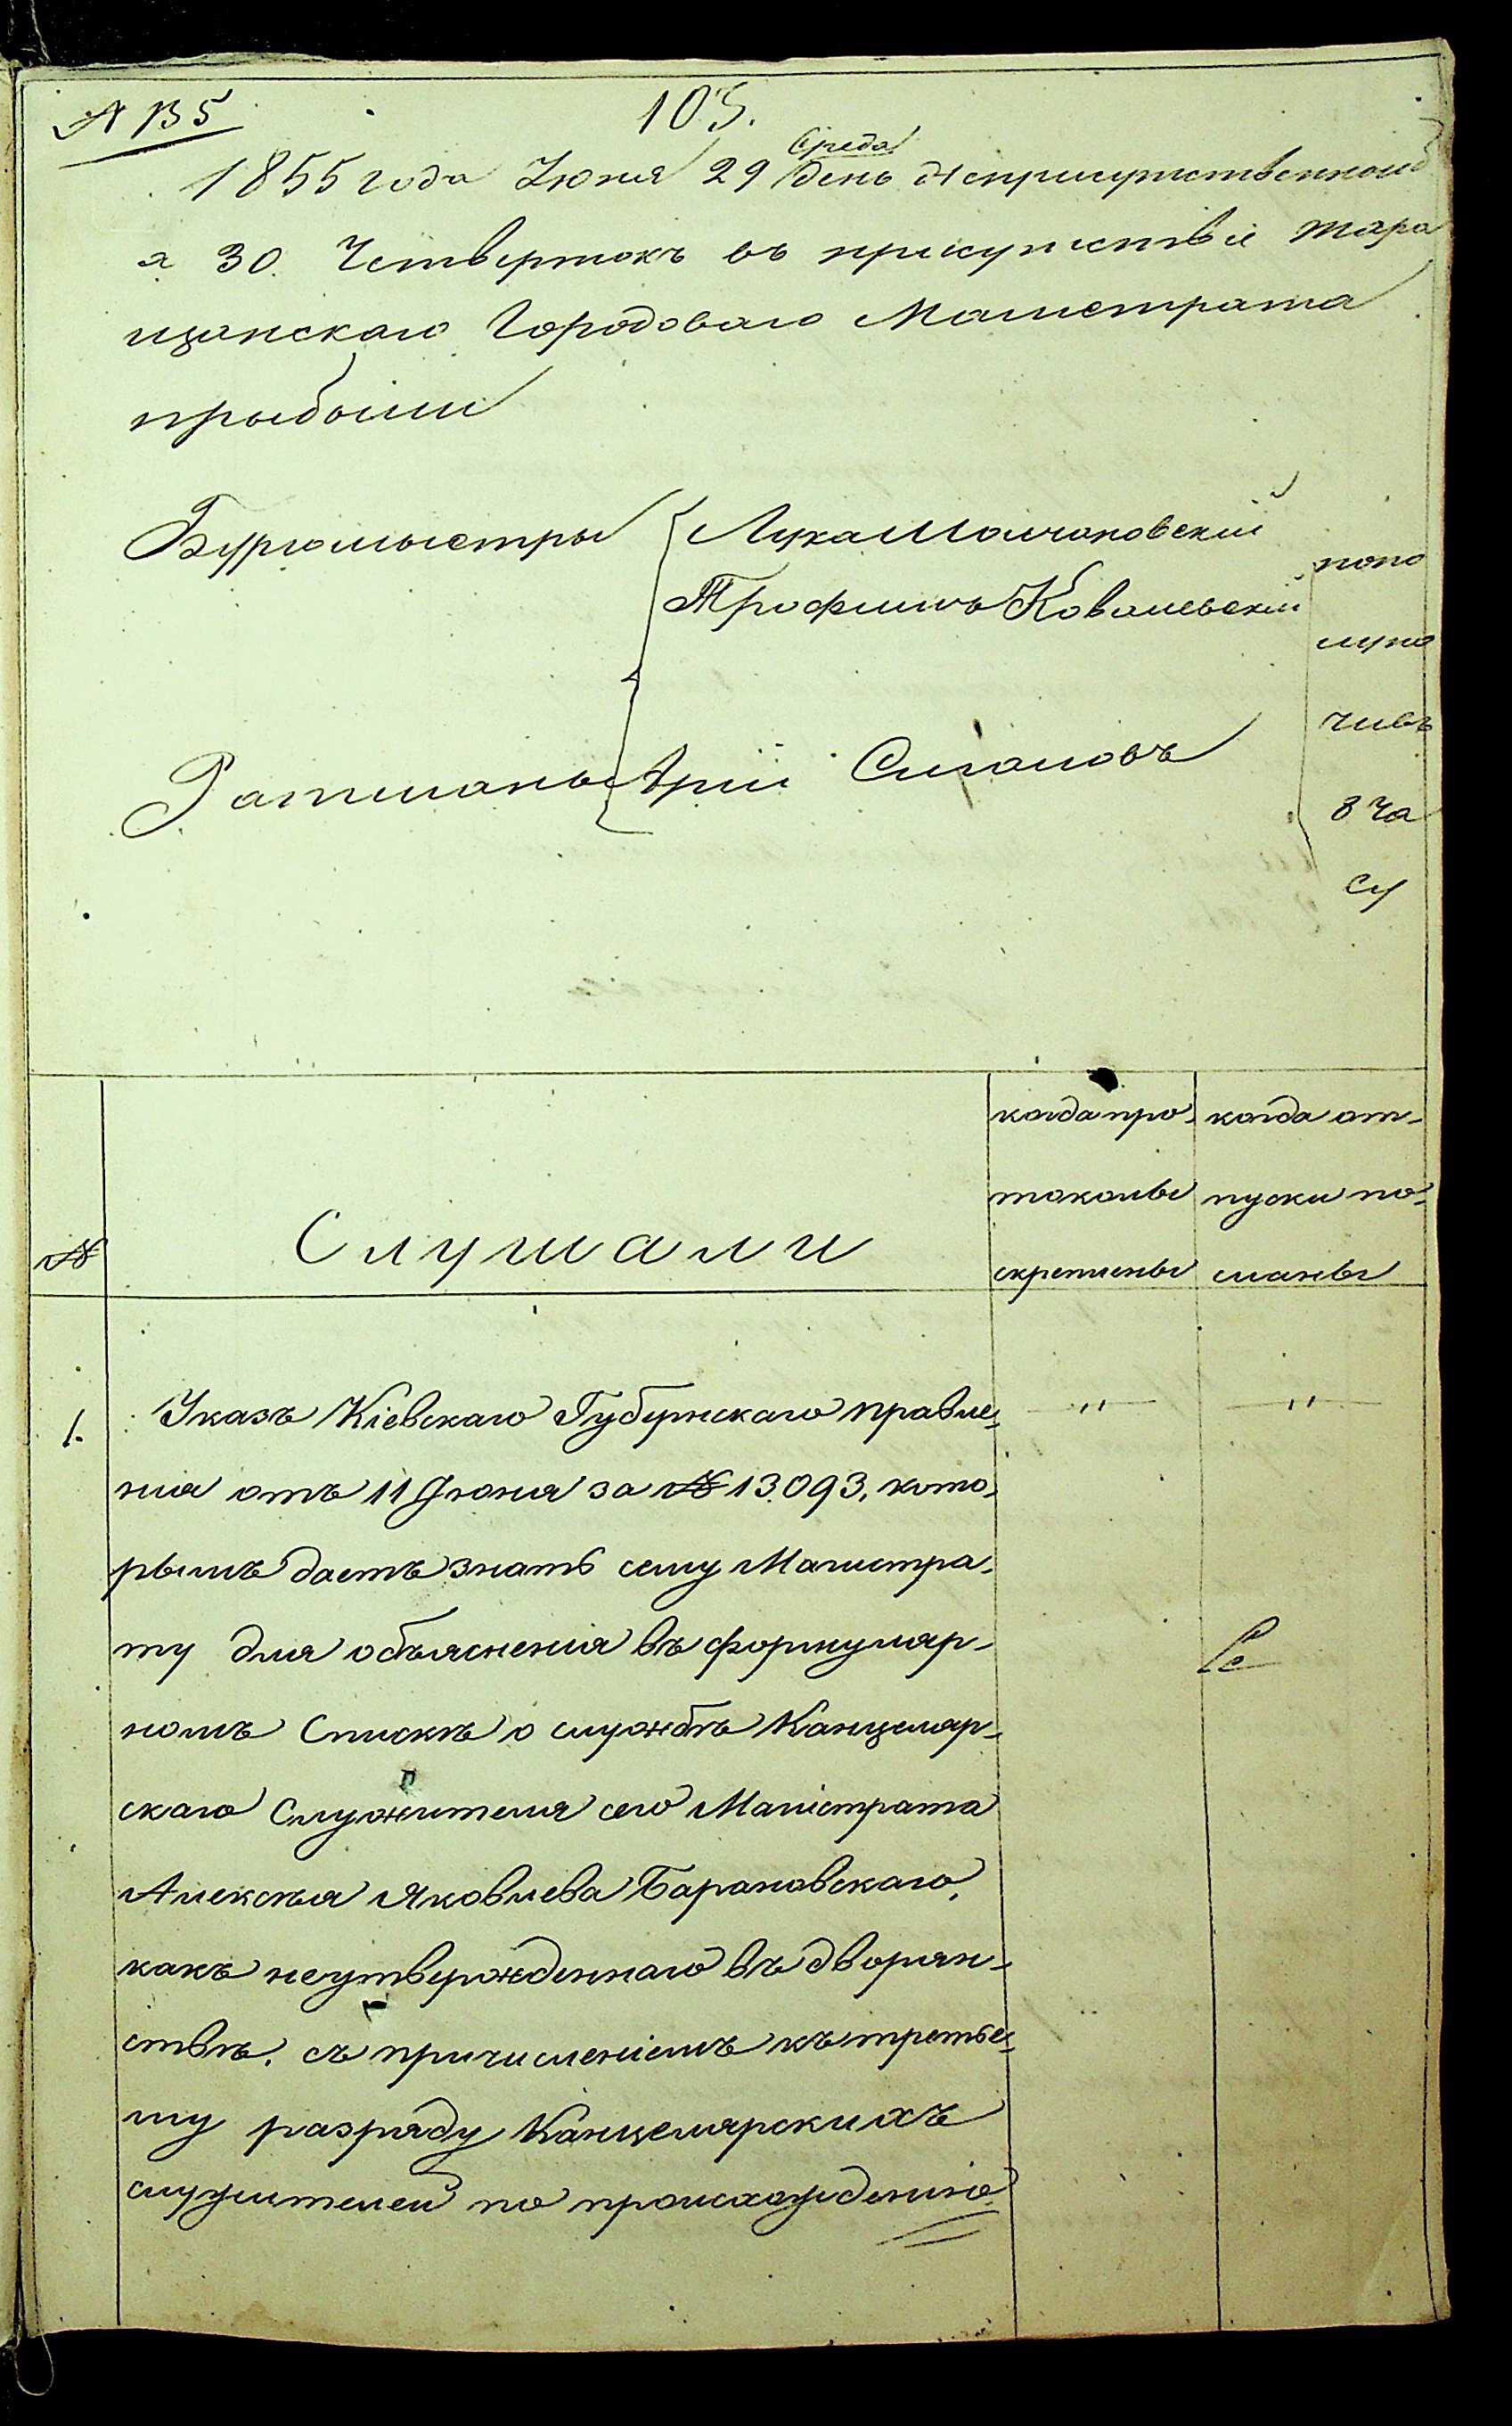 № 135
105.
Среда
1855 года Іюня 29 день Неприсутственной
а 30. Четвертокъ въ присутствіе Тара
щанскаго Городоваго Магистрата
прыбыли
Бургомыстры Лука Молчановскій
Трофимъ Ковалевскій
Ратманы Арій
попо
луно
чивъ
8 Ча
су
№
Слушали
когда про-
токолы
скреплены
когда от-
пуски по-
сланы
1.
Указъ Кіевскаго Губернскаго правле-
нія отъ 11 Іюня за № 13093, кото-
рымъ даетъ знать сему Магистра-
ту для объясненія въ формуляр-
номъ Спискѣ о службѣ Канцеляр-
скаго Служителя сего Магістрата
Алексѣя Яковлева Барановскаго,
какъ неутвержденнаго въ дворян-
ствѣ. съ причисленіемъ къ третье-
му разряду Канцелярскихъ
служителей по происхожденію